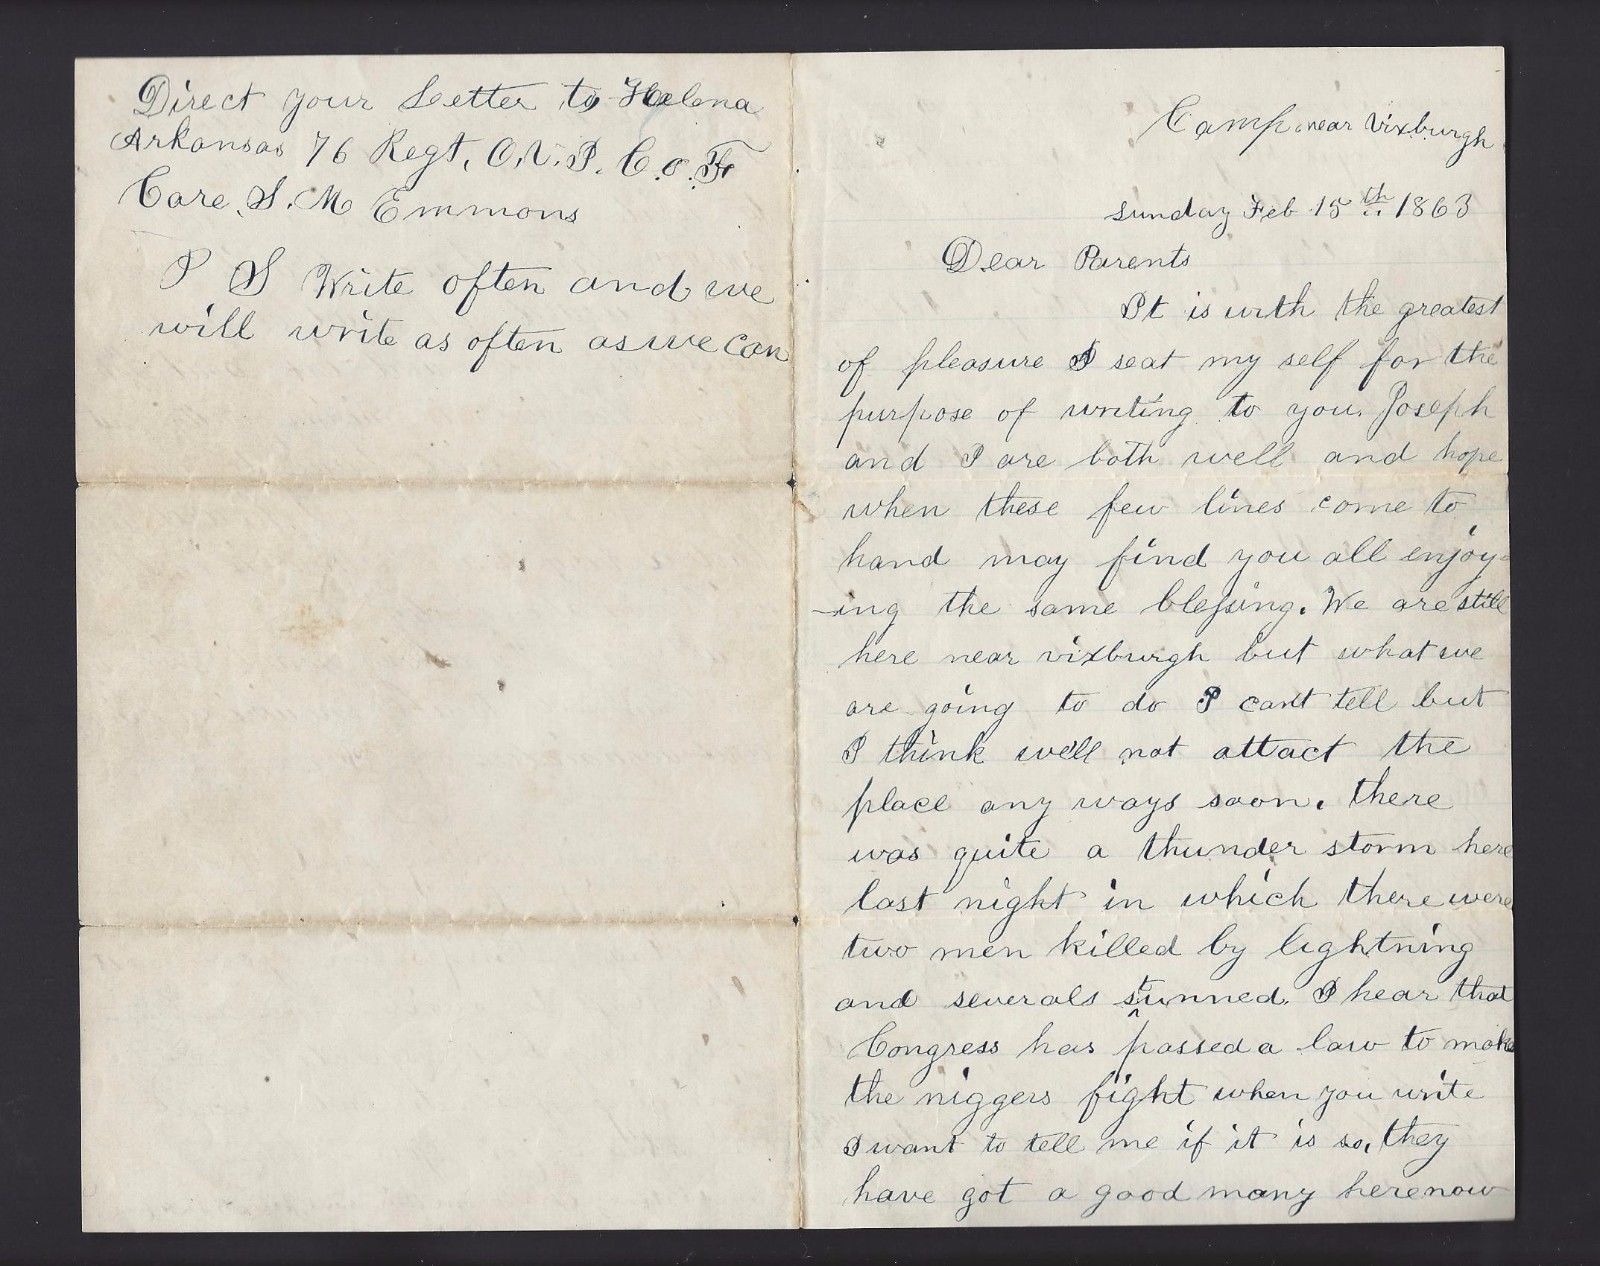 Direct your Letter to Helena
Arkansas 76 Regt, O.V.I. Co. F
Care. S. M Emmons
P S Write often and we
will write as often as we can
Camp near Vixburgh
Sunday Feb 15th 1863
Dear Parents
It is with the greatest
of pleasure I seat my self for the
purpose of writing to you. Joseph
and I are both well and hope
when these few lines come to
hand may find you all enjoy-
-ing the same blessing. We are still
here near vixburgh but what we
are going to do I cant tell but
I think we'll not attact the
place any ways soon. there
was quite a thunder storm here
last night in which there were
two men killed by lightning
and severals stunned. I hear that
Congress has passed a law to make
the niggers fight when you write
I want to tell me if it is so, they
have got a good many here now